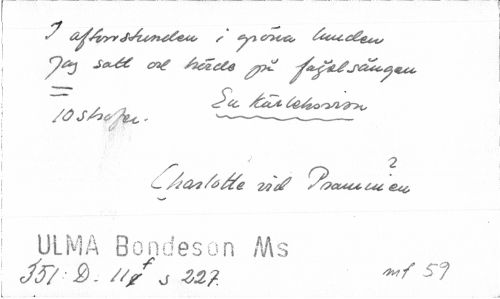 I aftonstunden i gröna lunden
Jag satt och hörde på fågelsången
=
10 strofer.
En kärleksvisa
?
Charlotte vid Prammen
ULMA Bondeson Ms
351: D. 11 f s 227.
mf 59